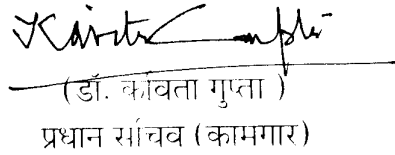 Kavita Gupta
(डॉ. कविता गुप्ता )
प्रधान सचिव (कामगार)